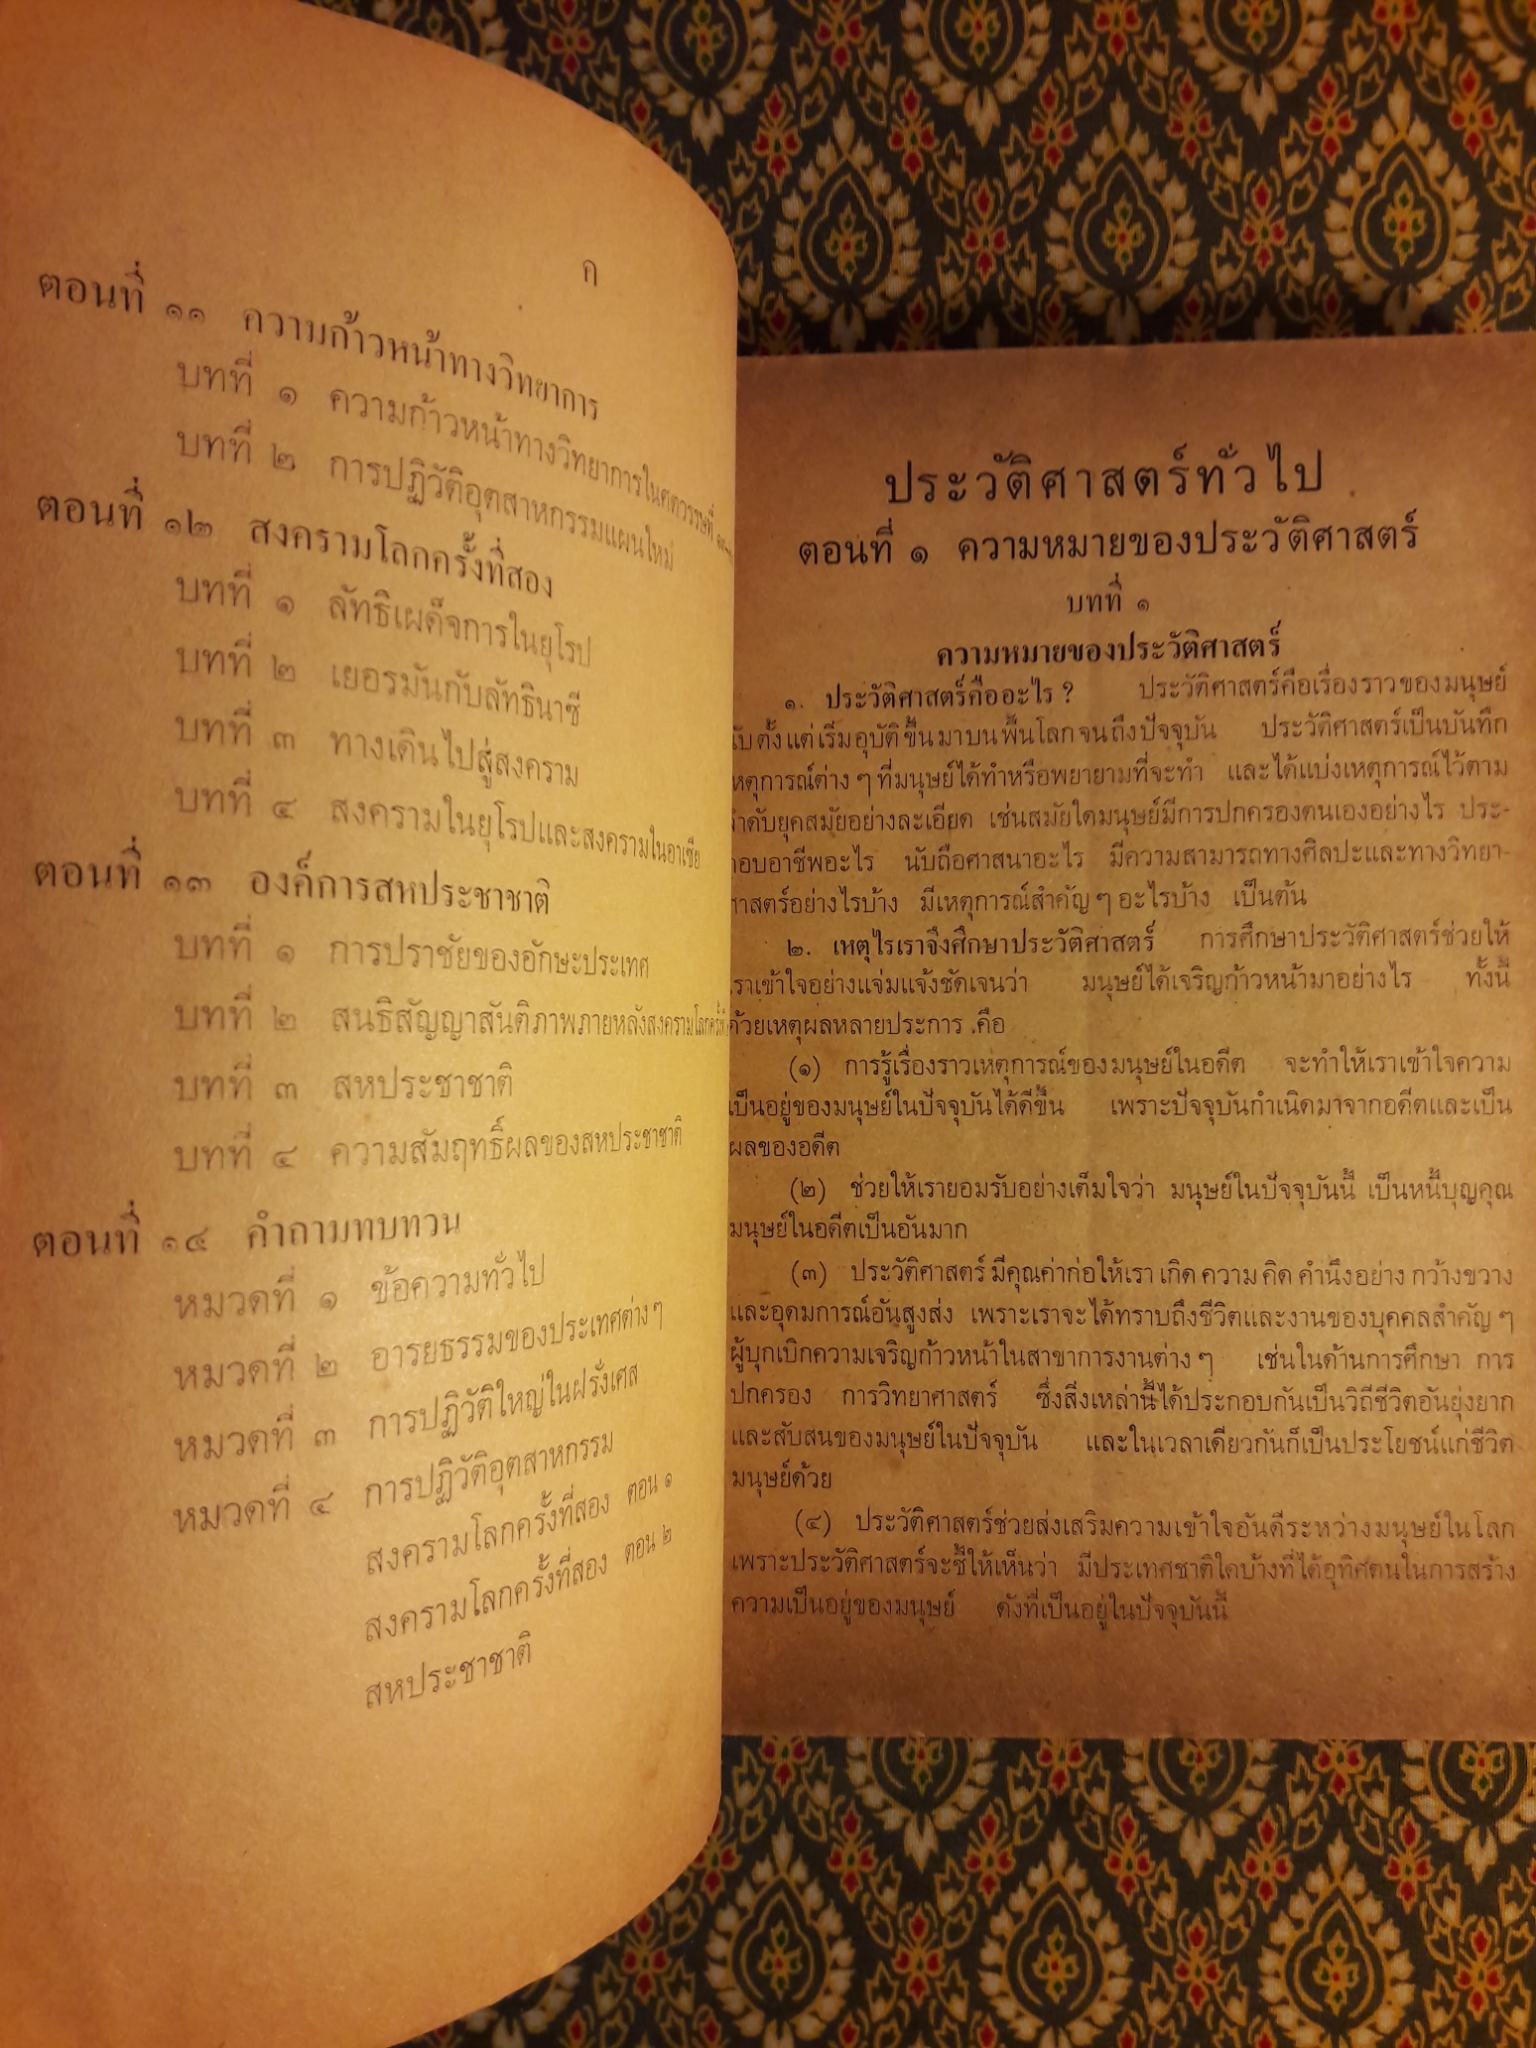 ค
ตอนที่ ๑๑ ความก้าวหน้าทางวิทยาการ
บทที่ ๑ ความก้าวหน้าทางวิทยาการในศตวรรษที่
บทที่ ๒ การปฏิวัติอุตสาหกรรมแผนใหม่
ตอนที่ ๑๒ สงครามโลกครั้งที่สอง
บทที่ ๑ ลัทธิเผด็จการในยุโรป
บทที่ ๒ เยอรมันกับลัทธินาซี
บทที่ ๓ ทางเดินไปสู่สงคราม
บทที่ ๔ สงครามในยุโรปและสงครามในอาเซีย
ตอนที่ ๑๓ องค์การสหประชาชาติ
บทที่ ๑ การปราชัยของอักษะประเทศ
บทที่ ๒ สนธิสัญญาสันติภาพภายหลังสงครามโลก
บทที่ ๓ สหประชาชาติ
บทที่ ๔ ความสัมฤทธิ์ผลของสหประชาชาติ
ตอนที่ ๑๔ คำถามทบทวน
หมวดที่ ๑ ข้อความทั่วไป
หมวดที่ ๒ อารยธรรมของประเทศต่างๆ
หมวดที่ ๓ การปฏิวัติใหญ่ในฝรั่งเศส
หมวดที่ ๔ การปฏิวัติอุตสาหกรรม
สงครามโลกครั้งที่สอง ตอน ๑
สงครามโลกครั้งที่สอง ตอน ๒
สหประชาชาติ
ประวัติศาสตร์ทั่วไป
ตอนที่ ๑ ความหมายของประวัติศาสตร์
บทที่ ๑
ความหมายของประวัติศาสตร์
๑. ประวัติศาสตร์คืออะไร ? ประวัติศาสตร์คือเรื่องราวของมนุษย์
ตั้งแต่เริ่มอุบัติขึ้นมาบนพื้นโลกจนถึงปัจจุบัน ประวัติศาสตร์เป็นบันทึก
เหตุการณ์ต่างๆที่มนุษย์ได้ทำหรือพยายามที่จะทำ และได้แบ่งเหตุการณ์ไว้ตาม
ลำดับยุคสมัยอย่างละเอียด เช่นสมัยใดมนุษย์มีการปกครองตนเองอย่างไร ประ-
กอบอาชีพอะไร นับถือศาสนาอะไร มีความสามารถทางศิลปะและทางวิทยา-
ศาสตร์อย่างไรบ้าง มีเหตุการณ์สำคัญๆอะไรบ้าง เป็นต้น
๒. เหตุไรเราจึงศึกษาประวัติศาสตร์ การศึกษาประวัติศาสตร์ช่วยให้
เราเข้าใจอย่างแจ่มแจ้งชัดเจนว่า มนุษย์ได้เจริญก้าวหน้ามาอย่างไร ทั้งนี้
ด้วยเหตุผลหลายประการ คือ
(๑) การรู้เรื่องราวเหตุการณ์ของมนุษย์ในอดีต จะทำให้เราเข้าใจความ
เป็นอยู่ของมนุษย์ในปัจจุบันได้ดีขึ้น เพราะปัจจุบันกำเนิดมาจากอดีตและเป็น
ผลของอดีต
(๒) ช่วยให้เรายอมรับอย่างเต็มใจว่า มนุษย์ในปัจจุบันนี้ เป็นหนี้บุญคุณ
มนุษย์ในอดีตเป็นอันมาก
(๓) ประวัติศาสตร์มีคุณค่าก่อให้เราเกิดความคิดคำนึงอย่างกว้างขวาง
และอุดมการณ์อันสูงส่ง เพราะเราจะได้ทราบถึงชีวิตและงานของบุคคลสำคัญๆ
ผู้บุกเบิกความเจริญก้าวหน้าในสาขาการงานต่างๆ เช่นในด้านการศึกษา การ
ปกครอง การวิทยาศาสตร์ ซึ่งสิ่งเหล่านี้ได้ประกอบกันเป็นวิถีชีวิตอันยุ่งยาก
และสับสนของมนุษย์ในปัจจุบัน และในเวลาเดียวกันก็เป็นประโยชน์แก่ชีวิต
มนุษย์ด้วย
(๔) ประวัติศาสตร์ช่วยส่งเสริมความเข้าใจอันดีระหว่างมนุษย์ในโลก
เพราะประวัติศาสตร์จะชี้ให้เห็นว่า มีประเทศชาติใดบ้างที่ได้อุทิศตนในการสร้าง
ความเป็นอยู่ของมนุษย์ ดังที่เป็นอยู่ในปัจจุบันนี้